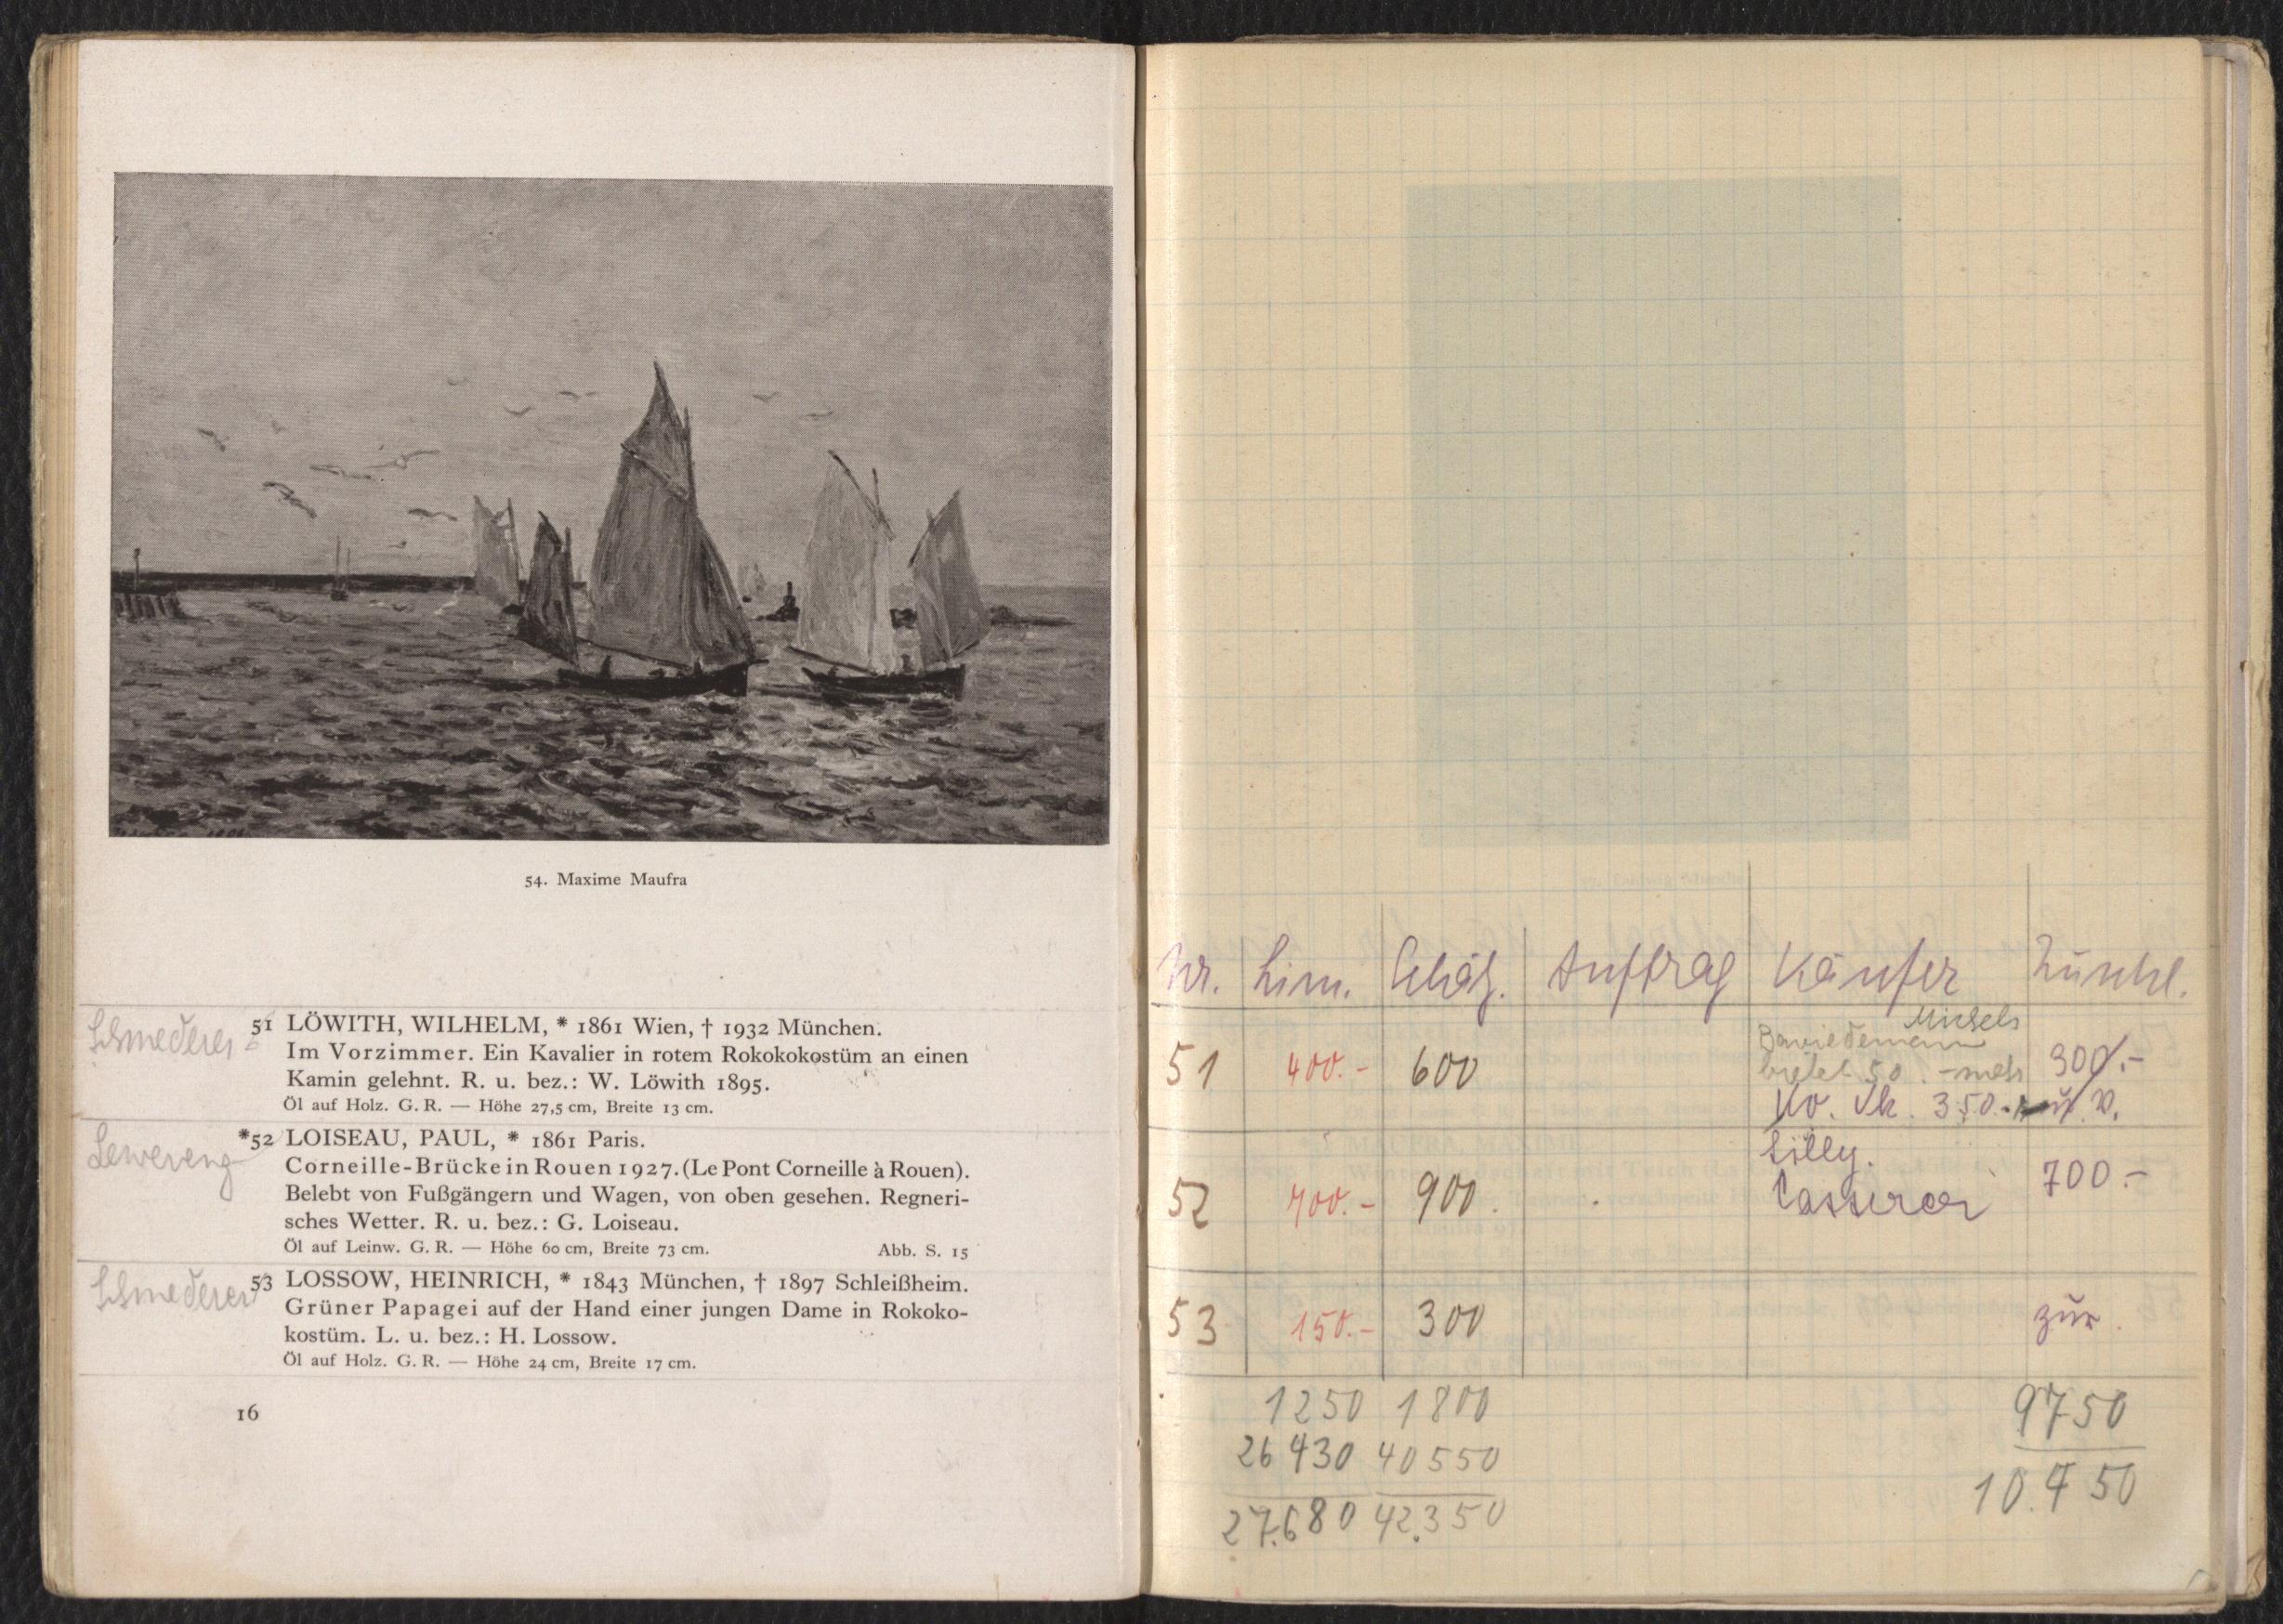 54. Maxime Maufra
51 LÖWITH, WILHELM, * 1861 Wien, † 1932 München.
Im Vorzimmer. Ein Kavalier in rotem Rokokokostüm an einen
Kamin gelehnt. R. u. bez.: W. Löwith 1895.
Öl auf Holz. G. R. — Höhe 27,5 cm, Breite 13 cm.
*52 LOISEAU, PAUL, * 1861 Paris.
Corneille-Brücke in Rouen 1927. (Le Pont Corneille à Rouen).
Belebt von Fußgängern und Wagen, von oben gesehen. Regneri-
sches Wetter. R. u. bez.: G. Loiseau.
Öl auf Leinw. G. R. — Höhe 60 cm, Breite 73 cm. Abb. S. 15
53 LOSSOW, HEINRICH, * 1843 München, † 1897 Schleißheim.
Grüner Papagei auf der Hand einer jungen Dame in Rokoko-
kostüm. L. u. bez.: H. Lossow.
Öl auf Holz. G. R. — Höhe 24 cm, Breite 17 cm.
16
Nr. Lim. Schätz. Auftrag Käufer Zuschl.
51 400.- 600 300.-
350.-
52 700.- 900. Lilly. Cassirer 700.-
53 150.- 300 zur.
1250 1800 9750
26430 40550
27.680 42.350 10.450